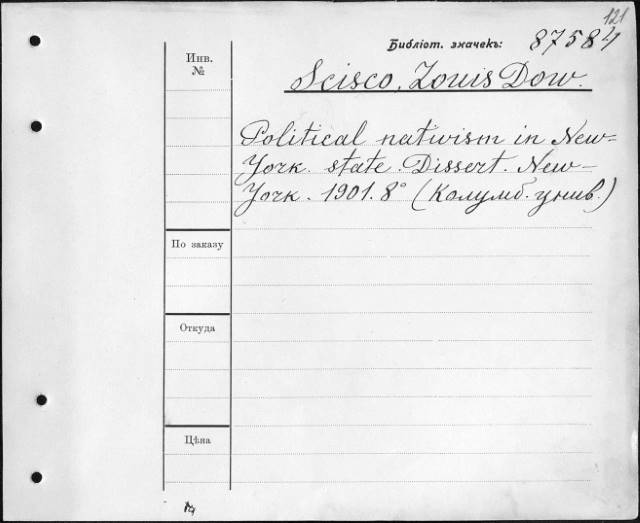 121
Библіот. значекъ: 87584
Инв.
№
Scisco, Louis Dow.
Political nativism in New=
York. state. Dissert. New-
York. 1901. 8° (Колумб. унив.)
По заказу
Откуда
Цѣна